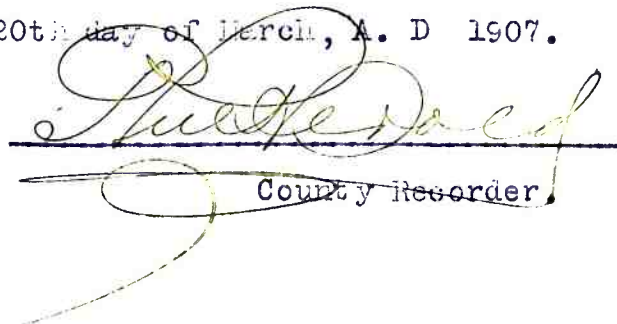 20th day of March, A. D 1907.
County Recorder.